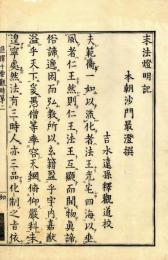 末法燈明記
本朝沙門最澄撰
吉水遠孫釋觀道校
夫範衞一如以流化者法王光宅四海以垂
風者仁王然則仁王法王互顯而開物真諦
俗諦遞因而弘教所以玄籍盈乎宇内嘉猷
溢乎天下爰愚僧等率容天網俯仰嚴科未
遑寧處然法有三時人亦三品化制之旨依